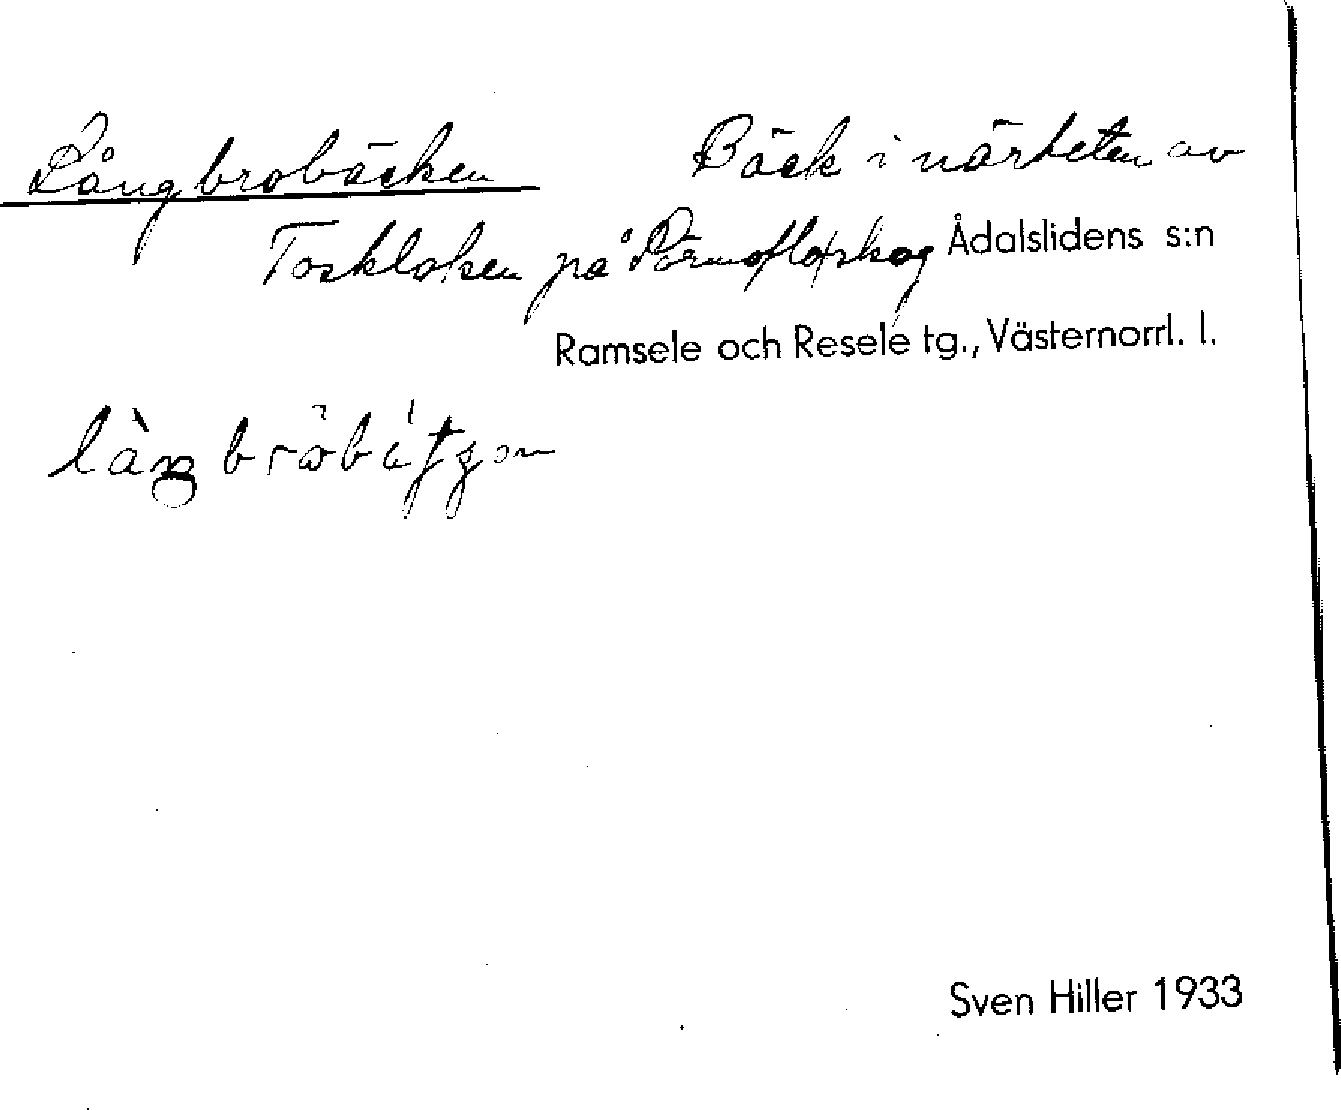 Långbrobäcken Bäck i närheten av
Toskloken på skog Ådalslidens s:n
Ramsele och Resele tg., Västernorrl. l.
Sven Hiller 1933